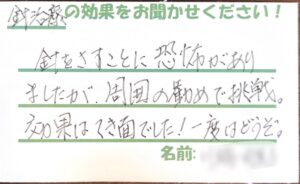 針治療の効果をお聞かせください！
針をさすことに恐怖があり
ましたが、周囲の勧めで挑戦。
効果はてき面でした！一度はどうぞ。
名前: